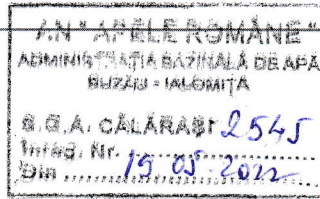 A.N "APELE ROMÂNE"
ADMINISTRAȚIA BAZINALĂ DE APĂ
BUZĂU - IALOMIȚA
S.G.A. CĂLĂRAȘI
Intrag. Nr. 2545
Din 19 05 2022